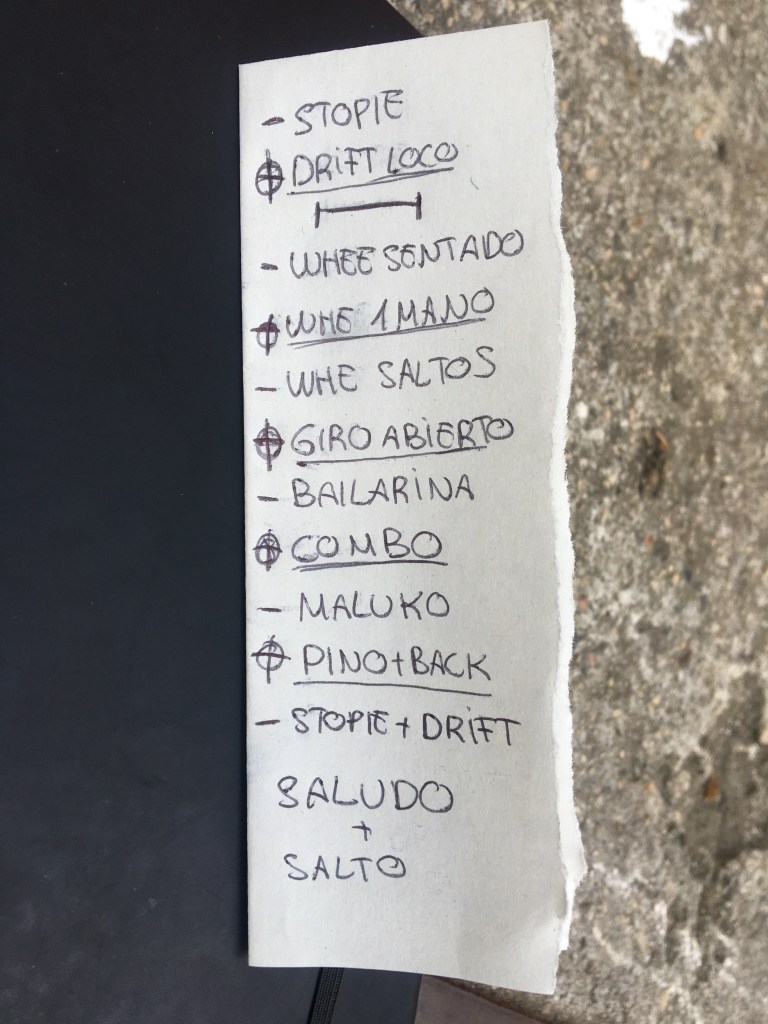 - STOPIE
DRIFT LOCO
- WHEE SENTADO
WHE 1 MANO
- WHE SALTOS
GIRO ABIERTO
- BAILARINA
COMBO
- MALUKO
PINO+BACK
- STOPIE + DRIFT
SALUDO
+
SALTO